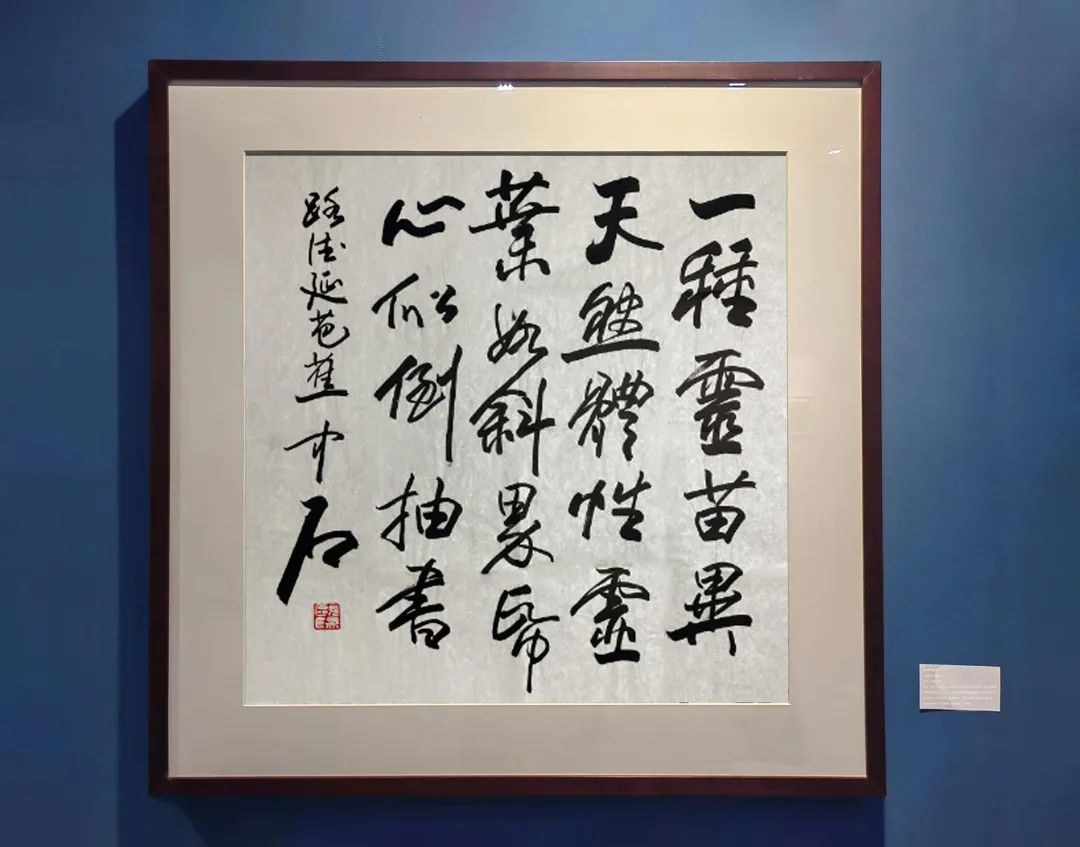 一種靈苗異
天然體性虛
葉如斜界帋
心似倒抽書
路德延芭蕉 中石